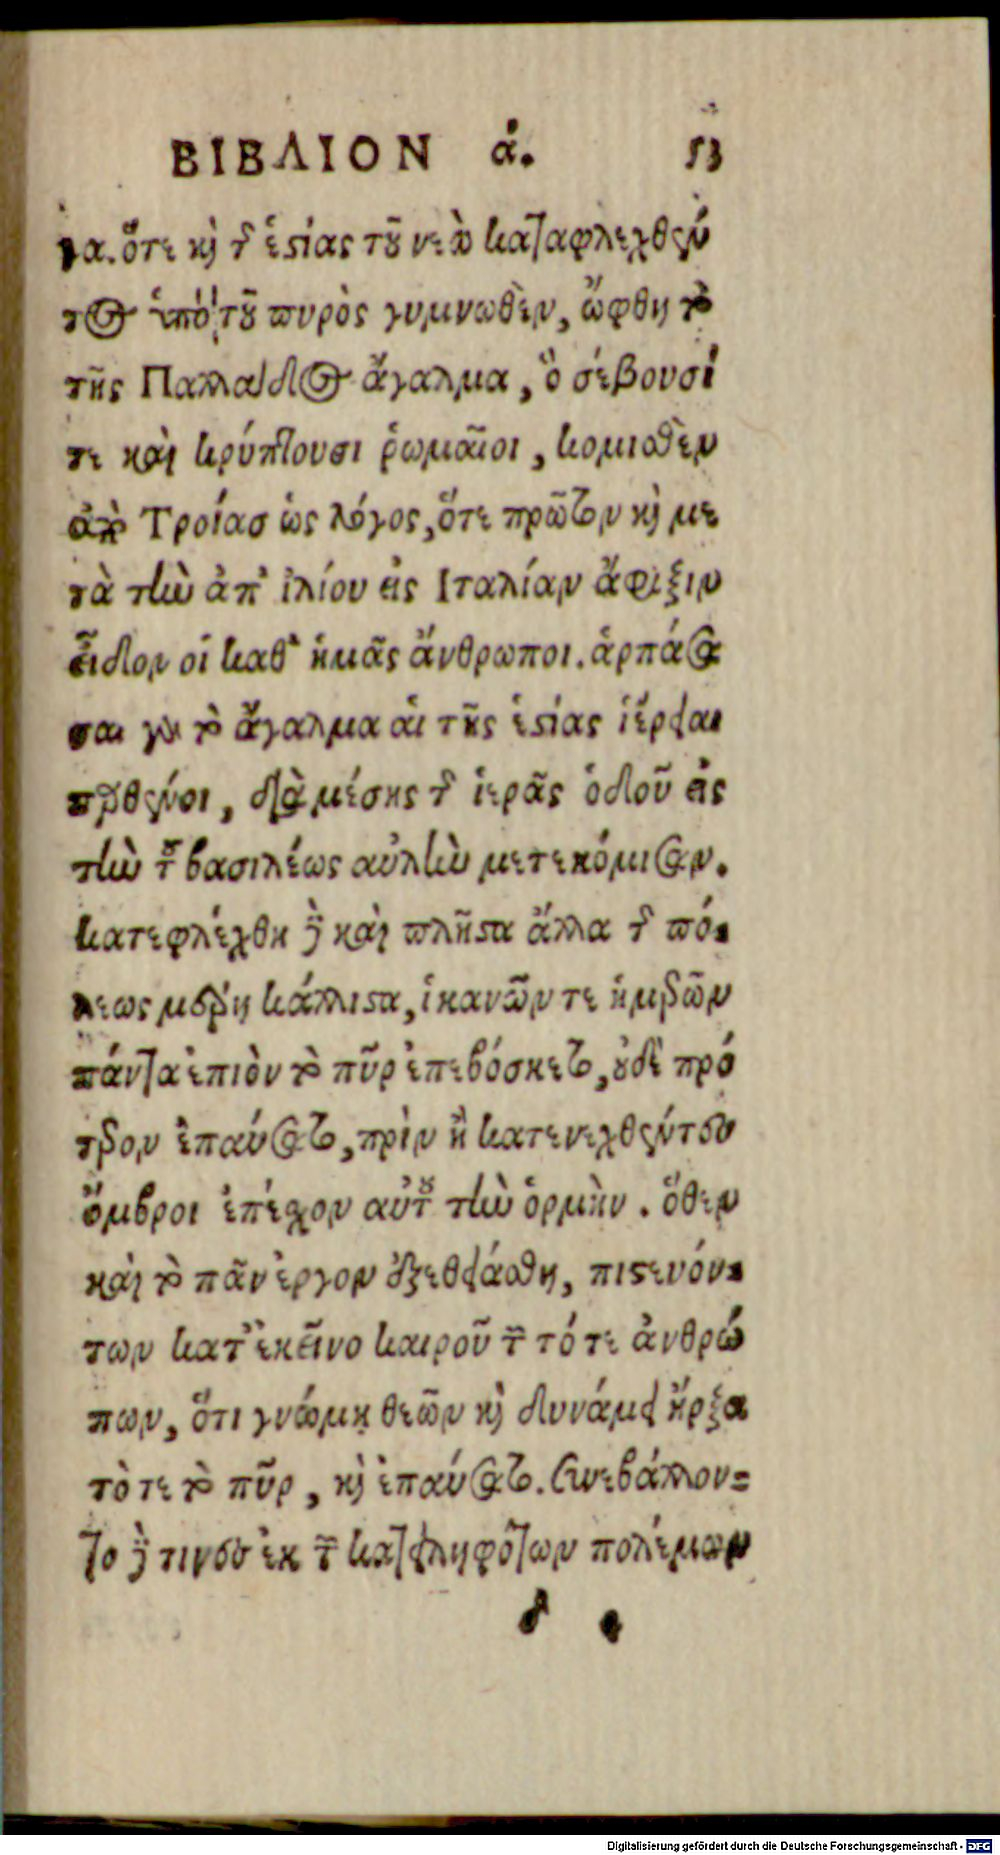 ΒΙΒΛΙΟΝ ά. 53
γα. ὅτε κὶ τῆς ἑστίας τοῦ νεὼ καταφλεχθέν
τος ὑπὸ τοῦ πυρὸς γυμνωθὲν, ὤφθη τὸ
τῆς Παλλάδος ἄγαλμα, ὃ σέβουσί
τε καὶ κρύπτουσι ῥωμαῖοι, κομισθὲν
ἀπὸ Τροίασ ὡς λόγος, ὅτε πρῶτον κὶ με
τὰ τὴν ἀπ' ἰλίου εἰς Ιταλίαν ἄφιξιν
εἶδον οἱ καθ' ἡμᾶς ἄνθρωποι. ἁρπάσα
σαι γὰρ τὸ ἄγαλμα αἱ τῆς ἑστίας ἱέρειαι
παρθένοι, διὰ μέσης τῆς ἱερᾶς ὁδοῦ εἰς
τὴν τοῦ βασιλέως αὐλὴν μετεκόμισαν.
κατεφλέχθη δὲ καὶ πλῆστα ἄλλα τῆς πό-
λεως μέρη κάλλιστα, ἱκανῶν τε ἡμερῶν
πάντα ἐπιὸν τὸ πῦρ ἐπεβόσκετο, οὐδὲ πρό
τερον ἐπαύσατο, πρὶν ἢ κατενεχθέντες
ὄμβροι ἐπέσχον αὐτοῦ τὴν ὁρμὴν. ὅθεν
καὶ τὸ πᾶν ἔργον ἐξεθειάσθη, πιστευόν-
των κατ' ἐκεῖνο καιροῦ τῶν τότε ἀνθρώ
πων, ὅτι γνώμῃ θεῶν κὶ δυνάμει ἤρξα
τό τε τὸ πῦρ, κὶ ἐπαύσατο. Συνεβάλλον=
το δὲ τινες ἐκ τῶν καταληφότων πολέμων
Digitalisierung gefördert durch die Deutsche Forschungsgemeinschaft - DFG